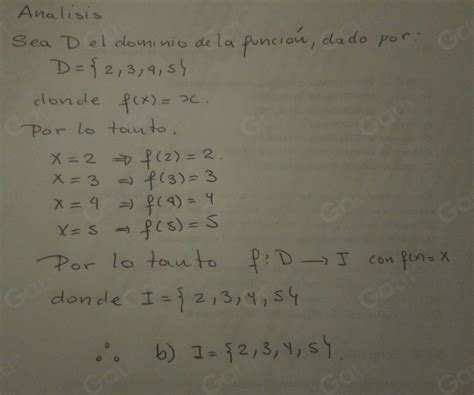 Analisis
Sea D el dominio de la función, dado por:
D = { 2, 3, 4, 5 }
donde f(x) = x.
Por lo tanto.
x = 2 ⇒ f(2) = 2.
x = 3 ⇒ f(3) = 3
x = 4 ⇒ f(4) = 4
x = 5 ⇒ f(5) = 5
Por lo tanto f: D → I con f(x) = x
donde I = { 2, 3, 4, 5 }
∴ b) I = { 2, 3, 4, 5 }.